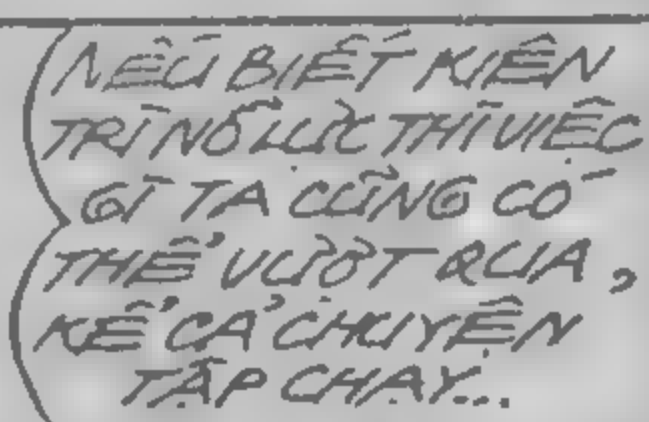 NẾU BIẾT KIÊN
TRÌ NỖ LỰC THÌ VIỆC
GÌ TA CŨNG CÓ
THỂ VƯỢT QUA,
KỂ CẢ CHUYỆN
TẬP CHẠY...